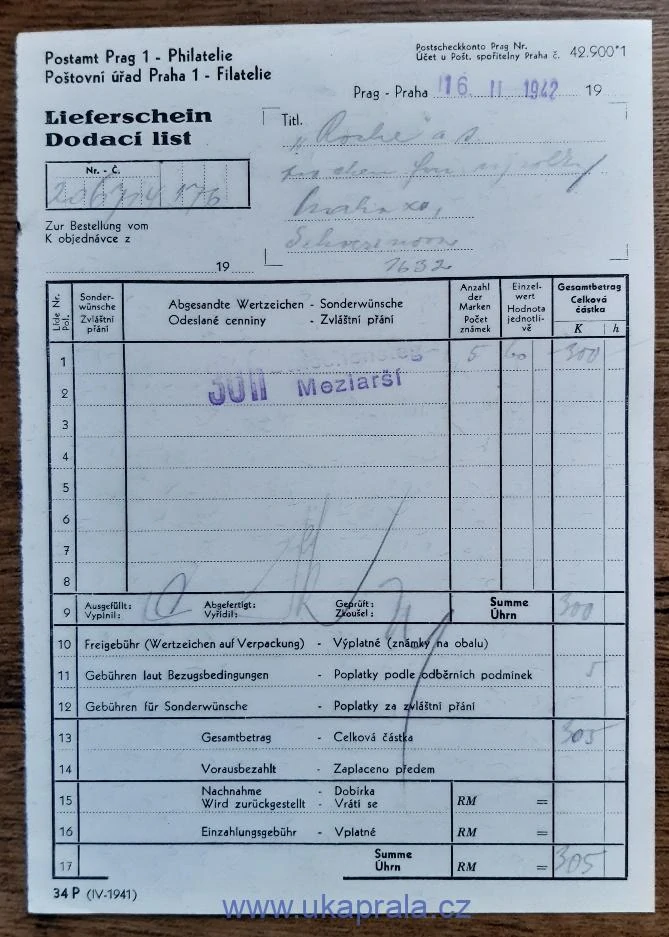 Postamt Prag 1 - Philatelie
Poštovní úřad Praha 1 - Filatelie
Postscheckkonto Prag Nr.
Účet u Pošt. spořitelny Praha č. 42.900*1
Prag - Praha 16 II 1942 19
Lieferschein
Dodací list
Titl.
"Roche" a s
Nr. - Č.
Praha XII,
1632
Zur Bestellung vom
K objednávce z
19
Lfde Nr. Pol.
Sonder-wünsche Zvláštní přání
Abgesandte Wertzeichen - Sonderwünsche
Odeslané cenniny - Zvláštní přání
Anzahl der Marken Počet známek
Einzel-wert Hodnota jednotli-vě
Gesamtbetrag Celková částka
K h
1 5 60 300
2 Meziarší
3
4
5
6
7
8
9 Ausgefüllt: Vyplnil: Abgefertigt: Vyřídil: Geprüft: Zkoušel: Summe Úhrn 300
10 Freigebühr (Wertzeichen auf Verpackung) - Výplatné (známky na obalu)
11 Gebühren laut Bezugsbedingungen - Poplatky podle odběrních podmínek 5
12 Gebühren für Sonderwünsche - Poplatky za zvláštní přání
13 Gesamtbetrag - Celková částka 305
14 Vorausbezahlt - Zaplaceno předem
15 Nachnahme - Dobírka
Wird zurückgestellt - Vrátí se RM =
16 Einzahlungsgebühr - Vplatné RM =
17 Summe Úhrn RM = 305
34 P (IV-1941)
www.ukaprala.cz